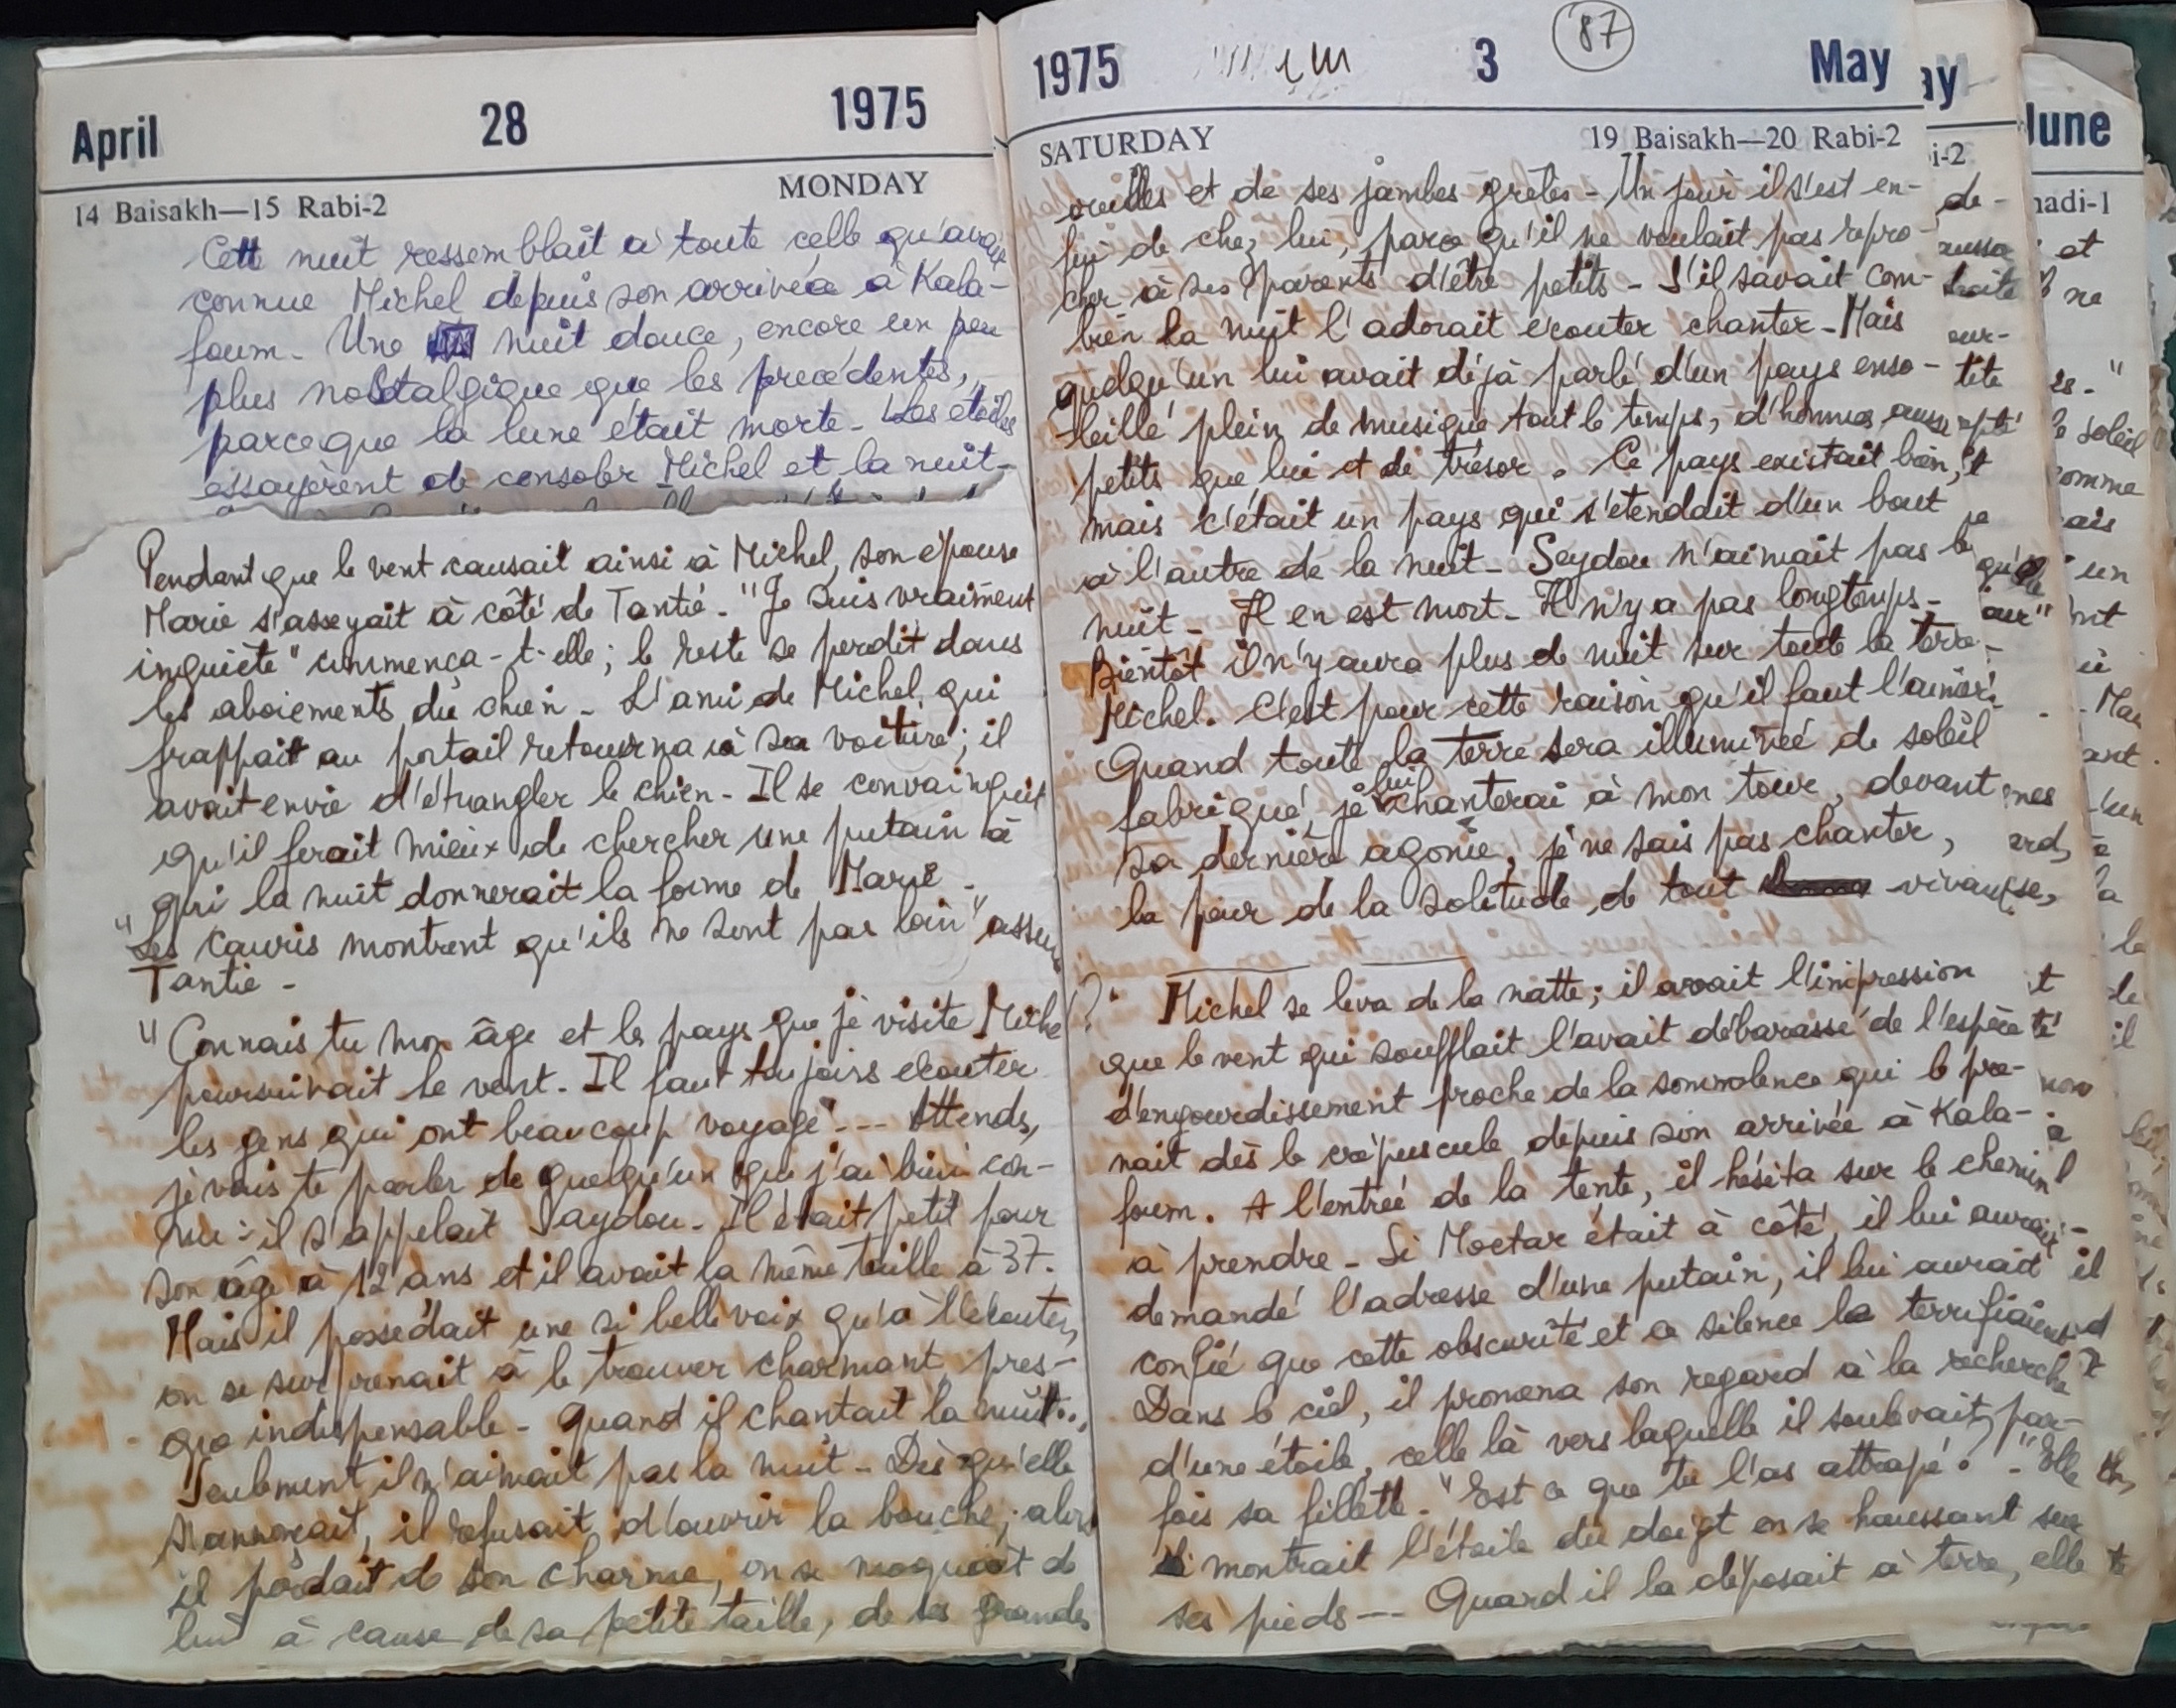 April 28 1975
14 Baisakh—15 Rabi-2 MONDAY
Cette nuit ressemblait à toute celle qu'avait
connue Michel depuis son arrivée à Kala-
foum - Une nuit douce, encore un peu
plus nostalgique que les precédentes,
parceque la lune était morte - Les etoiles
essayèrent de consoler Michel et la nuit -
Pendant que le vent causait ainsi à Michel, son epouse
Marie s'asseyait à côté de Tantie - "Je suis vraiment
inquiète" commença-t-elle; le reste se perdit dans
les aboiements du chien - L'ami de Michel, qui
frappait au portail retourna à sa voiture; il
avait envie d'étrangler le chien - Il se convainquit
qu'il ferait mieux de chercher une putain à
qui la nuit donnerait la forme de Marie -
"Les cauris montrent qu'ils ne sont pas loin" assura
Tantie -
"Connais tu mon âge et les pays que je visite Michel?
poursuivait le vent - Il faut toujours ecouter
les gens qui ont beaucoup voyagé --- Attends,
je vais te parler de quelqu'un que j'ai bien con-
nu : il s'appelait Saydou - Il était petit pour
son âge à 12 ans et il avait la même taille à 37.
Mais il possédait une si belle voix qu'à l'écouter,
on se surprenait à le trouver charmant, pres-
que indispensable - Quand il chantait la nuit...
Seulement il n'aimait pas la nuit - Dès qu'elle
s'annonçait, il refusait d'ouvrir la bouche; alors
il perdait de son charme, on se moquait de
lui à cause de sa petite taille, de ses grandes
1975 3 87 May
SATURDAY 19 Baisakh—20 Rabi-2
oreilles et de ses jambes grêles - Un jour il s'est en-
fui de chez lui, parce qu'il ne voulait pas repro-
cher à ses parents d'être petits - S'il savait com-
bien la nuit l'adorait ecouter chanter - Mais
quelqu'un lui avait déjà parlé d'un pays enso-
leillé plein de musique tout le temps, d'hommes aussi
petits que lui et de trésor. Ce pays existait bien,
mais c'était un pays qui s'etendait d'un bout
à l'autre de la nuit - Seydou n'aimait pas la
nuit - Il en est mort - Il n'y a pas longtemps -
Bientôt il n'y aura plus de nuit sur toute la terre -
Michel. C'est pour cette raison qu'il faut l'aimer.
Quand toute la terre sera illuminée de soleil
fabriqué, je lui chanterai à mon tour, devant
sa dernière agonie, je ne sais pas chanter,
la peur de la solitude, de tout
Michel se leva de la natte; il avait l'impression
que le vent qui soufflait l'avait débarassé de l'espèce
d'engourdissement proche de la somnolence qui le pre-
nait dès le crépuscule depuis son arrivée à Kala-
foum. A l'entrée de la tente, il hésita sur le chemin
à prendre - Si Moctar était à côté, il lui aurait
demandé l'adresse d'une putain, il lui aurait
confié que cette obscurité et ce silence le terrifiaient
Dans le ciel, il promena son regard à la recherche
d'une étoile, celle là vers laquelle il soulevait par-
fois sa fillette - "Est ce que tu l'as attrapé?" - Elle
montrait l'étoile du doigt en se haussant sur
ses pieds --- Quand il la déposait à terre, elle
ay
June
i-2
nadi-1